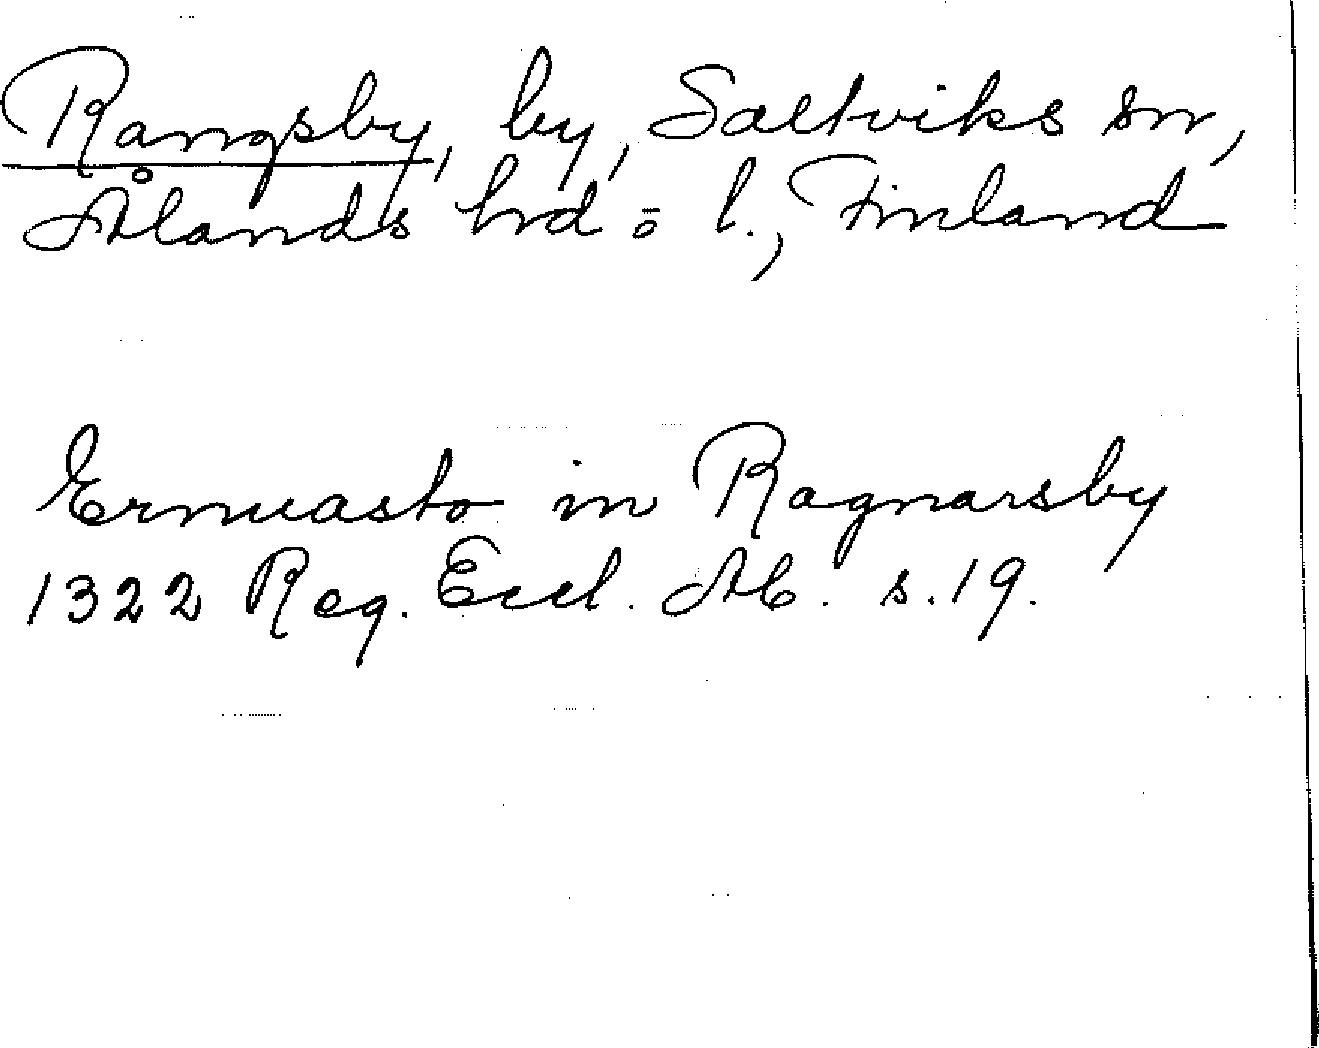 Rangsby, by, Saltviks sn,
Ålands hd o l., Finland
Ernuasto in Ragnarsby
1322 Reg. Eccl. Ab. s. 19.